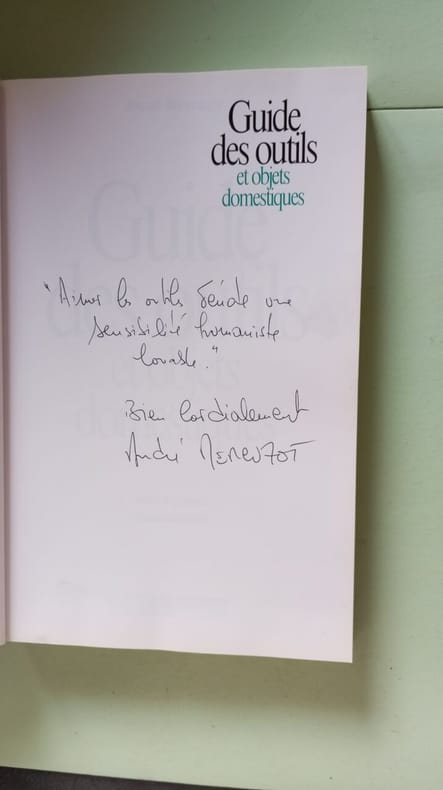 Guide
des outils
et objets
domestiques
"Aimer les outils dénote une
sensibilité humaniste
louable."
Bien cordialement
André